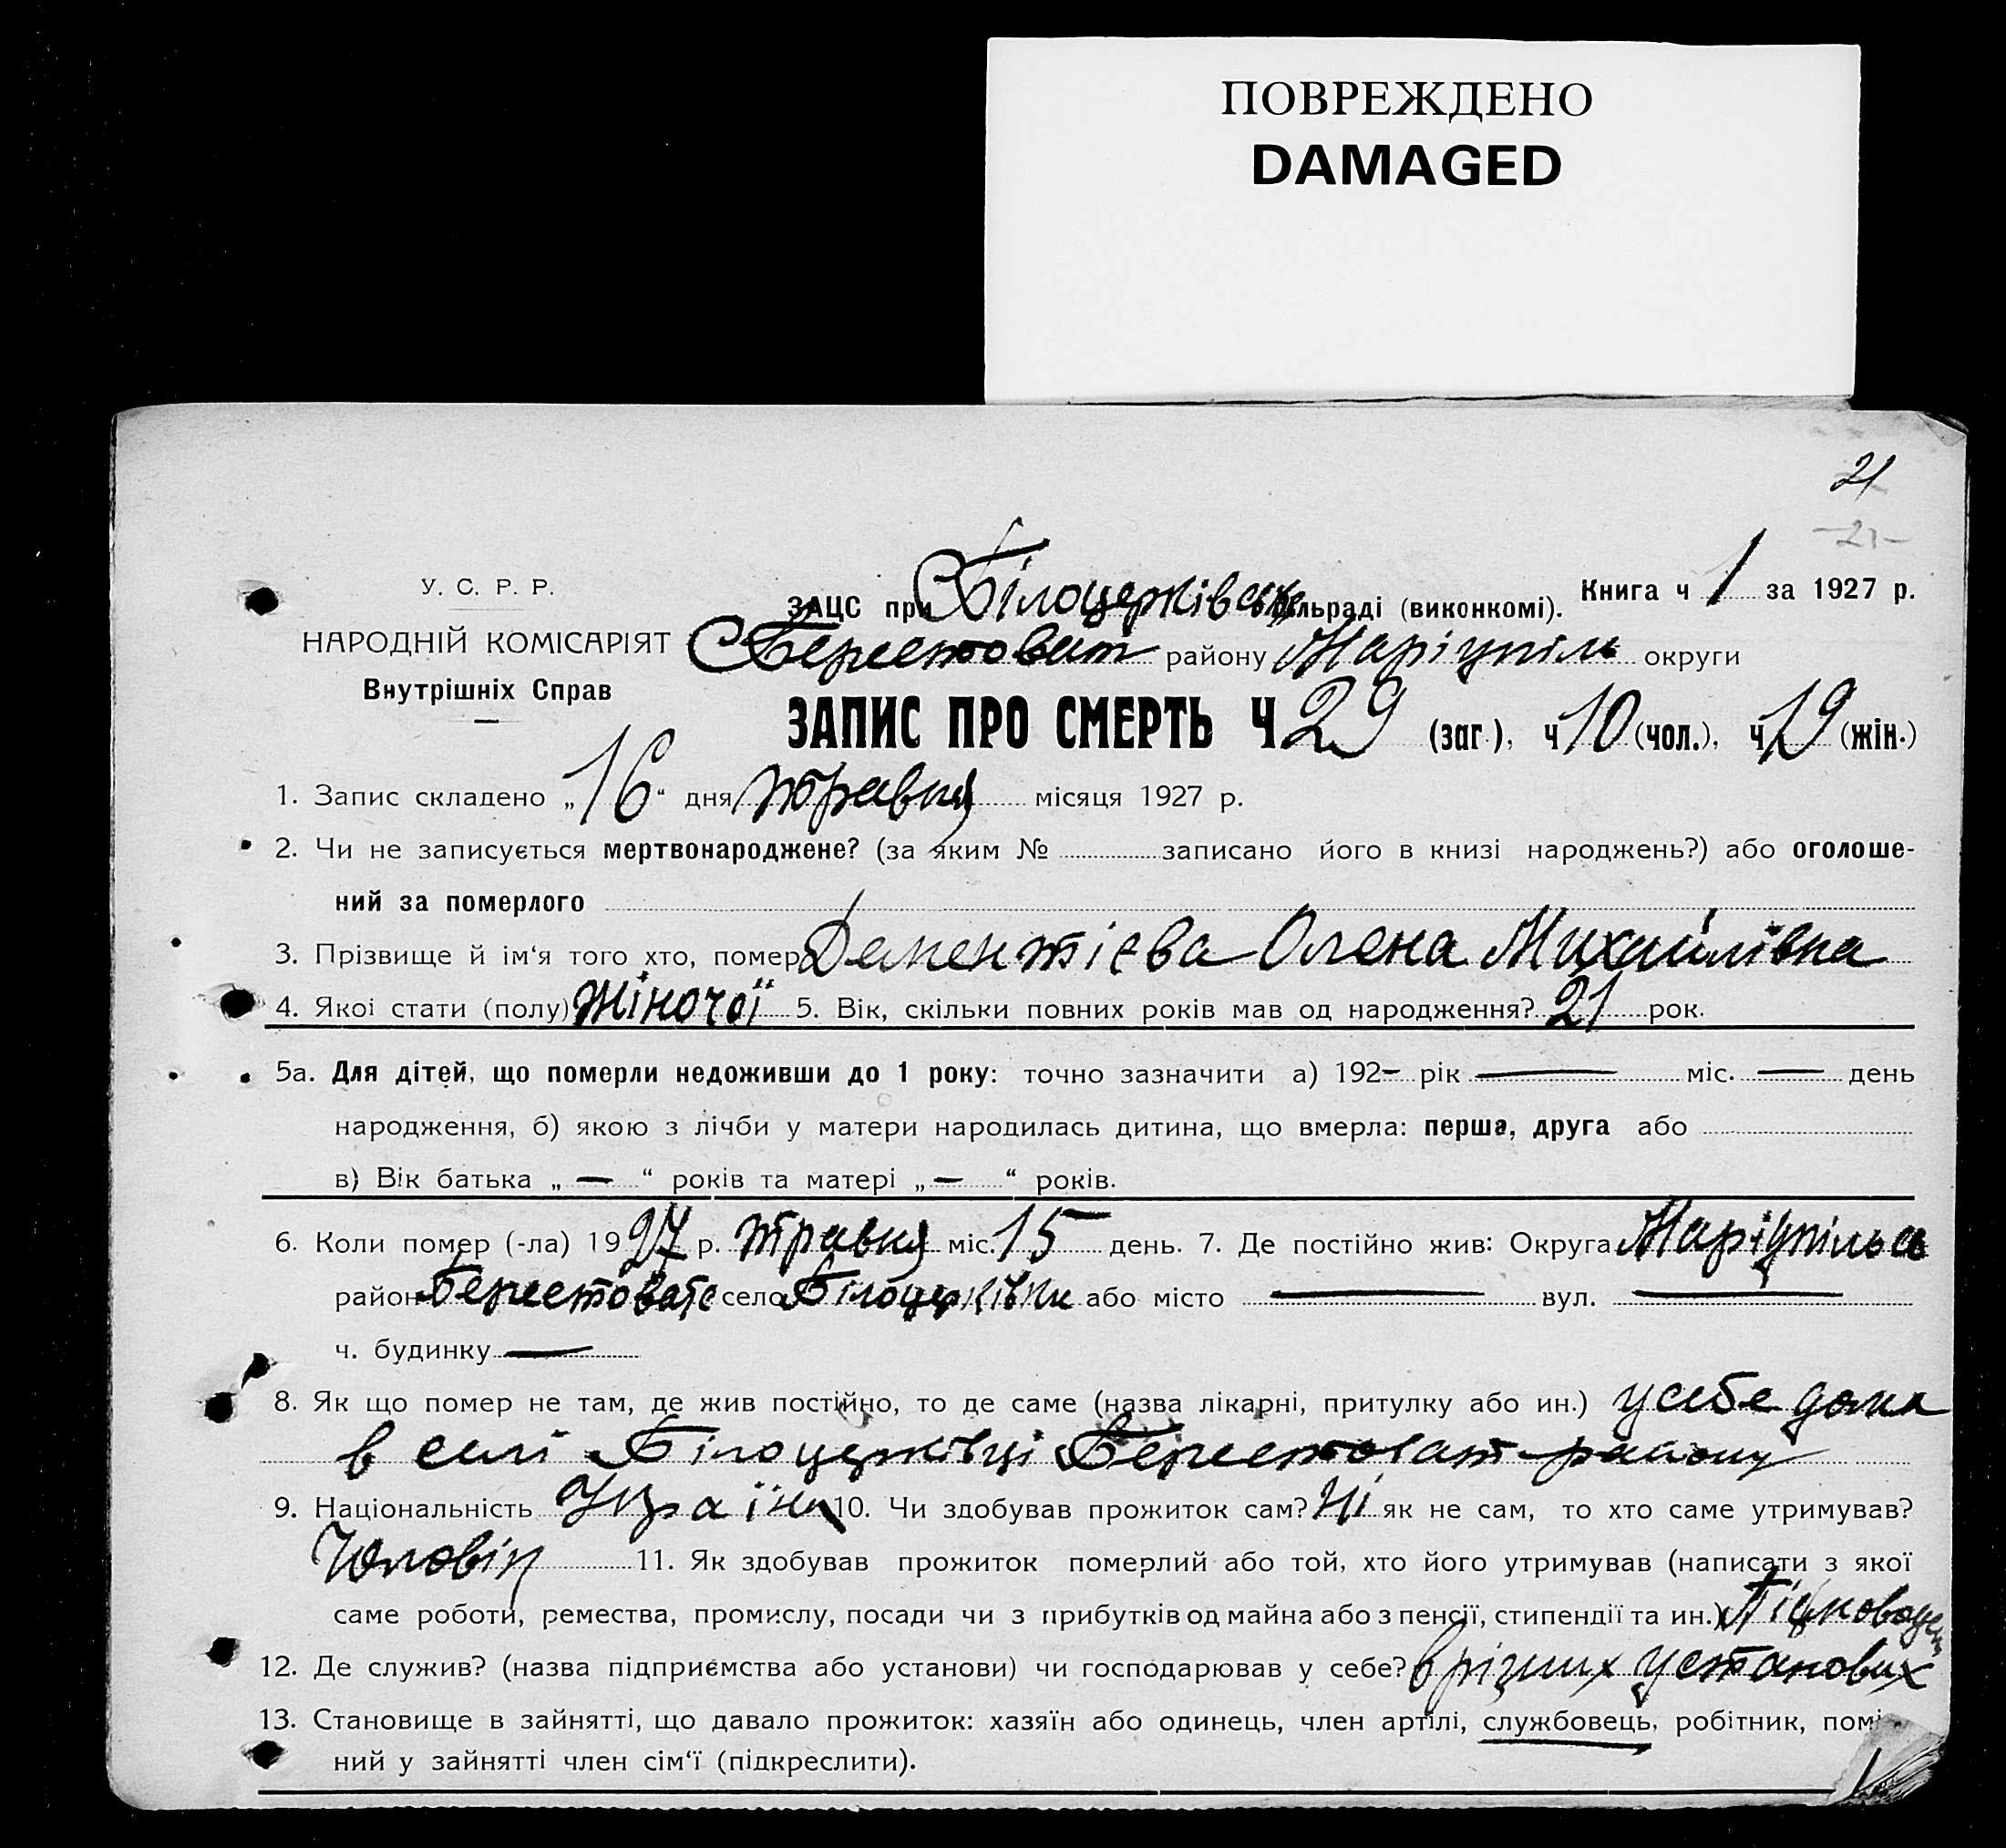 ПОВРЕЖДЕНО
DAMAGED
21
-21-
У. С. Р. Р.
ЗАЦС при Білоцерківськ сільраді (виконкомі). Книга ч 1 за 1927 р.
НАРОДНІЙ КОМІСАРІЯТ Берестоват району Маріупіль округи
Внутрішніх Справ
ЗАПИС ПРО СМЕРТЬ Ч 29 (заг.), ч 10 (чол.), ч 19 (жін.)
1. Запис складено „16“ дня травня місяця 1927 р.
2. Чи не записується мертвонароджене? (за яким № записано його в книзі народжень?) або оголоше-
ний за померлого
3. Прізвище й ім‘я того хто, помер Дементієва Олена Михайлівна
4. Якої стати (полу) Жіночої 5. Вік, скільки повних років мав од народження? 21 рок.
5а. Для дітей, що померли недоживши до 1 року: точно зазначити а) 192– рік — міс. — день
народження, б) якою з лічби у матери народилась дитина, що вмерла: перша, друга або
в) Вік батька „—“ років та матері „—“ років.
6. Коли помер (-ла) 1927 р. травня міс. 15 день. 7. Де постійно жив: Округа Маріупільсь
район Берестоват село Білоцерківки або місто — вул. —
ч. будинку —
8. Як що помер не там, де жив постійно, то де саме (назва лікарні, притулку або ин.) у себе дома
в селі Білоцерківці Берестоват району
9. Національність Україн 10. Чи здобував прожиток сам? Ні як не сам, то хто саме утримував?
Чоловік 11. Як здобував прожиток померлий або той, хто його утримував (написати з якої
саме роботи, ремества, промислу, посади чи з прибутків од майна або з пенсії, стипендії та ин.)
12. Де служив? (назва підприємства або установи) чи господарював у себе? в різних установах
13. Становище в зайнятті, що давало прожиток: хазяїн або одинець, член артілі, службовець, робітник, помі
ний у зайнятті член сім‘ї (підкреслити).